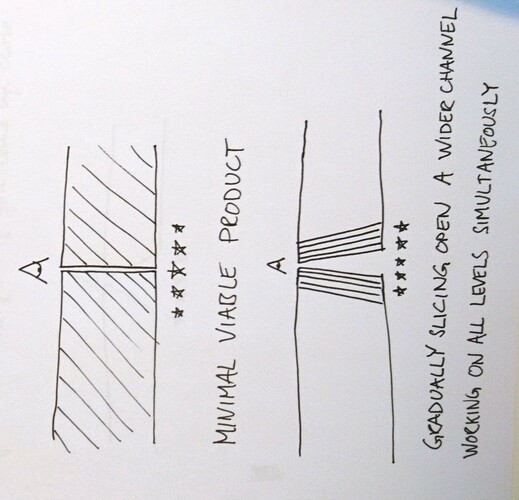 MINIMAL VIABLE PRODUCT
GRADUALLY SLICING OPEN A WIDER CHANNEL
WORKING ON ALL LEVELS SIMULTANEOUSLY